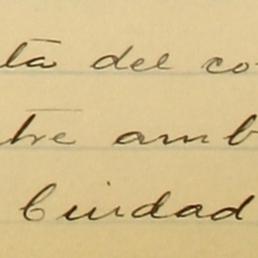 ta del co
tre amb
Ciudad